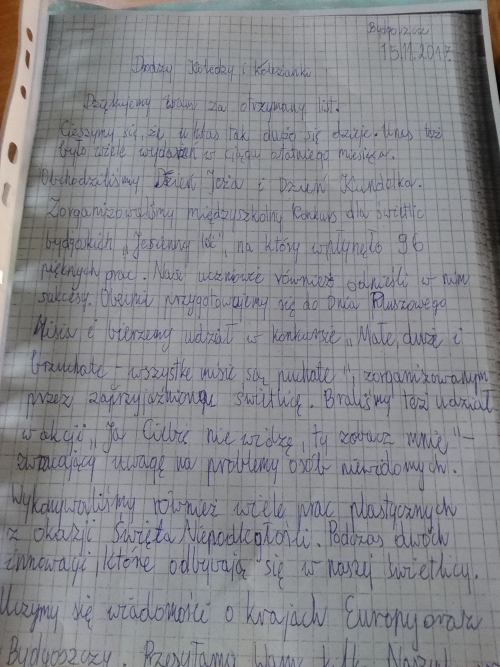 Bydgoszcz
15.11.2017
Drodzy Koledzy i Koleżanki
Dziękujemy Wam za otrzymany list.
Cieszymy się, że u Was tak dużo się dzieje. U nas też
było wiele wydarzeń w ciągu ostatniego miesiąca.
Obchodziliśmy Dzień Jeża i Dzień Kundelka.
Zorganizowaliśmy międzyszkolny konkurs dla świetlic
bydgoskich „Jesienny liść", na który wpłynęło 96
pięknych prac. Nasi uczniowie również odnieśli w nim
sukcesy. Obecnie przygotowujemy się do Dnia Pluszowego
Misia i bierzemy udział w konkursie „Małe, duże i
brzuchate - wszystkie misie są puchate", zorganizowanym
przez zaprzyjaźnioną świetlicę. Braliśmy też udział
w akcji „Ja Ciebie nie widzę, ty zobacz mnie" -
zwracający uwagę na problemy osób niewidomych.
Wykonywaliśmy również wiele prac plastycznych
z okazji Święta Niepodległości. Podczas dwóch
innowacji, które odbywają się w naszej świetlicy.
Uczymy się wiadomości o krajach Europy oraz
Bydgoszczy. Przesyłamy Wam